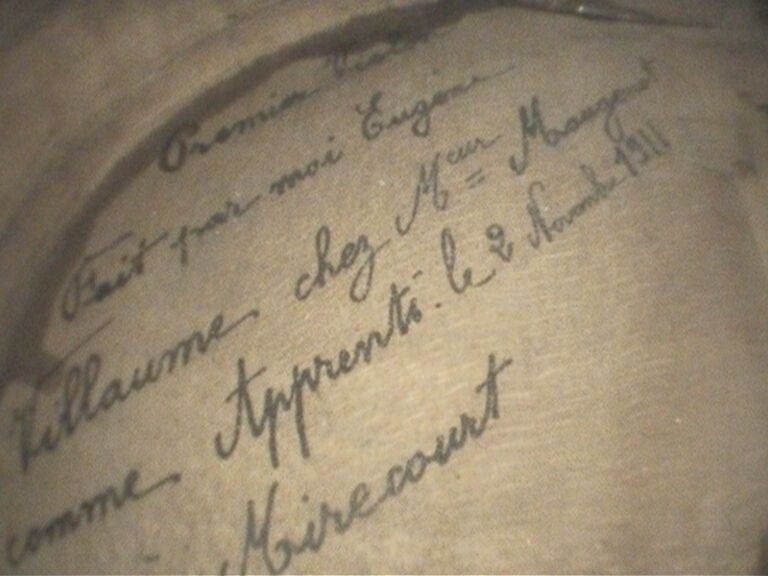 Premier Violon
Fait par moi Eugène
Villaume chez Meur Maugenot
comme Apprenti. le 2 Novembre 1911
à Mirecourt